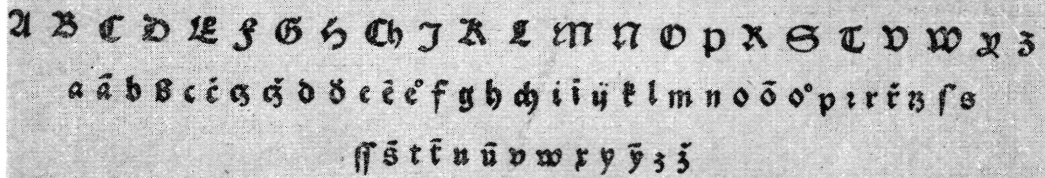 A B C D E F G H Ch J K L M N O P R S T V W X Z
a ā b ß c ċ cz ċz d ď e ē e° f g h ch i ī ÿ k l m n o ō o° p ꝛ r r̄ rz ſ s
ſſ s̄ t t̄ u ū v w x y ȳ z z̄